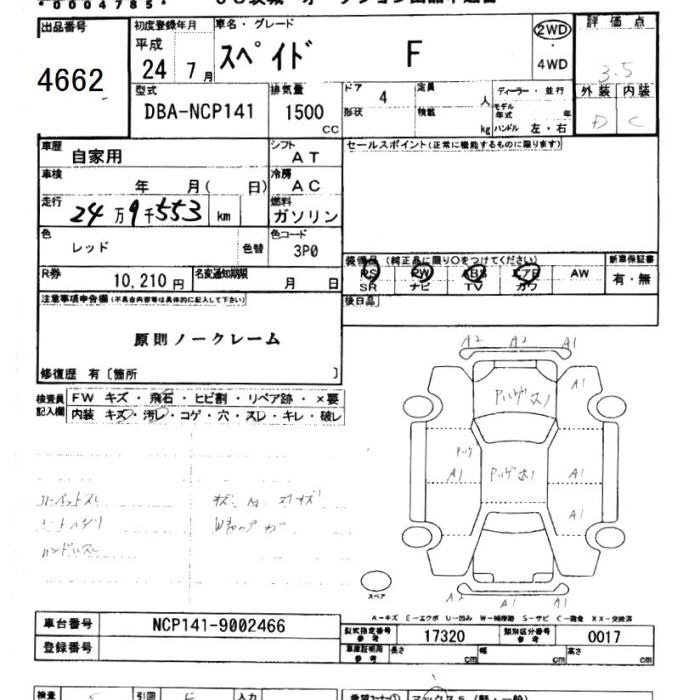 *0004785*
出品番号
4662
初度登録年月
平成
24 7月
車名・グレード
スペイド F
2WD
・
4WD
評価点
3.5
外装 内装
D C
型式
DBA-NCP141
排気量
1500
CC
ドア 4
形状
定員 人
積載 kg
ディーラー・並行
モデル年式 年
ハンドル 左・右
車歴
自家用
シフト
AT
セールスポイント(正常に機能するものに限ります)
車検
年 月( 日)
冷房
AC
走行
24万9千553 km
燃料
ガソリン
色
レッド
色替
色コード
3P0
装備品(純正品に限り○をつけてください)
PS PW ABS エアB AW
SR ナビ TV カワ
新車保証書
有・無
R券
10,210円
名変通知期限
月 日
後日品
注意事項申告欄(不具合内容等は具体的に記入して下さい)
原則ノークレーム
修復歴 有〔箇所 〕
検査員
記入欄
FW キズ・飛石・ヒビ割・リペア跡・×要
内装 キズ・汚レ・コゲ・穴・スレ・キレ・破レ
A2 A2 A1
A1
A1 A1
A1
A1 A1
ハンドルスレ
スペア
A-キズ E-エクボ U-凹み W-補修跡 S-サビ C-腐食 XX-交換済
車台番号
NCP141-9002466
登録番号
型式指定番号
参考
17320
類別区分番号
参考
0017
車庫証明用
参考
長さ cm
幅 cm
高さ cm
検査
引回
入力